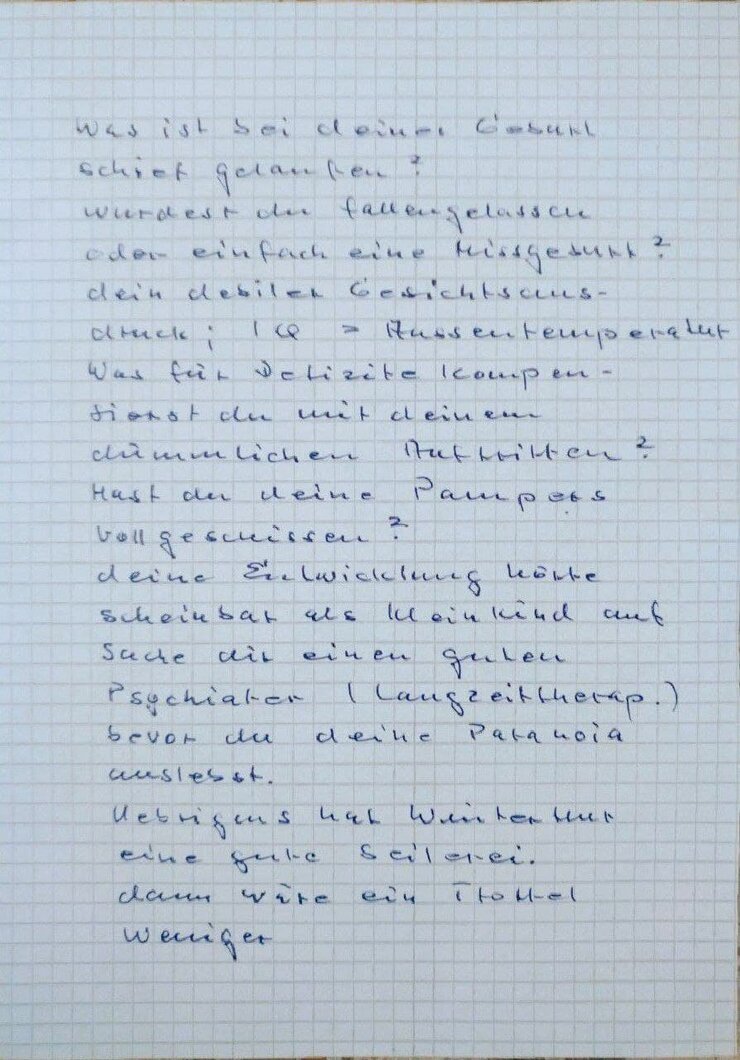 Was ist bei deiner Geburt
schief gelaufen?
wurdest du fallengelassen
oder einfach eine Missgeburt?
dein debiler Gesichtsaus-
druck; IQ = Aussentemperatur
Was für Defizite kompen-
sierst du mit deinem
dümmlichen Auftritten?
Hast du deine Pampers
vollgeschissen?
deine Entwicklung hörte
scheinbar als Kleinkind auf
Suche dir einen guten
Psychiater (Langzeittherap.)
bevor du deine Paranoia
auslebst.
Uebrigens hat Winterthur
eine gute Seilerei.
dann wäre ein Trottel
weniger